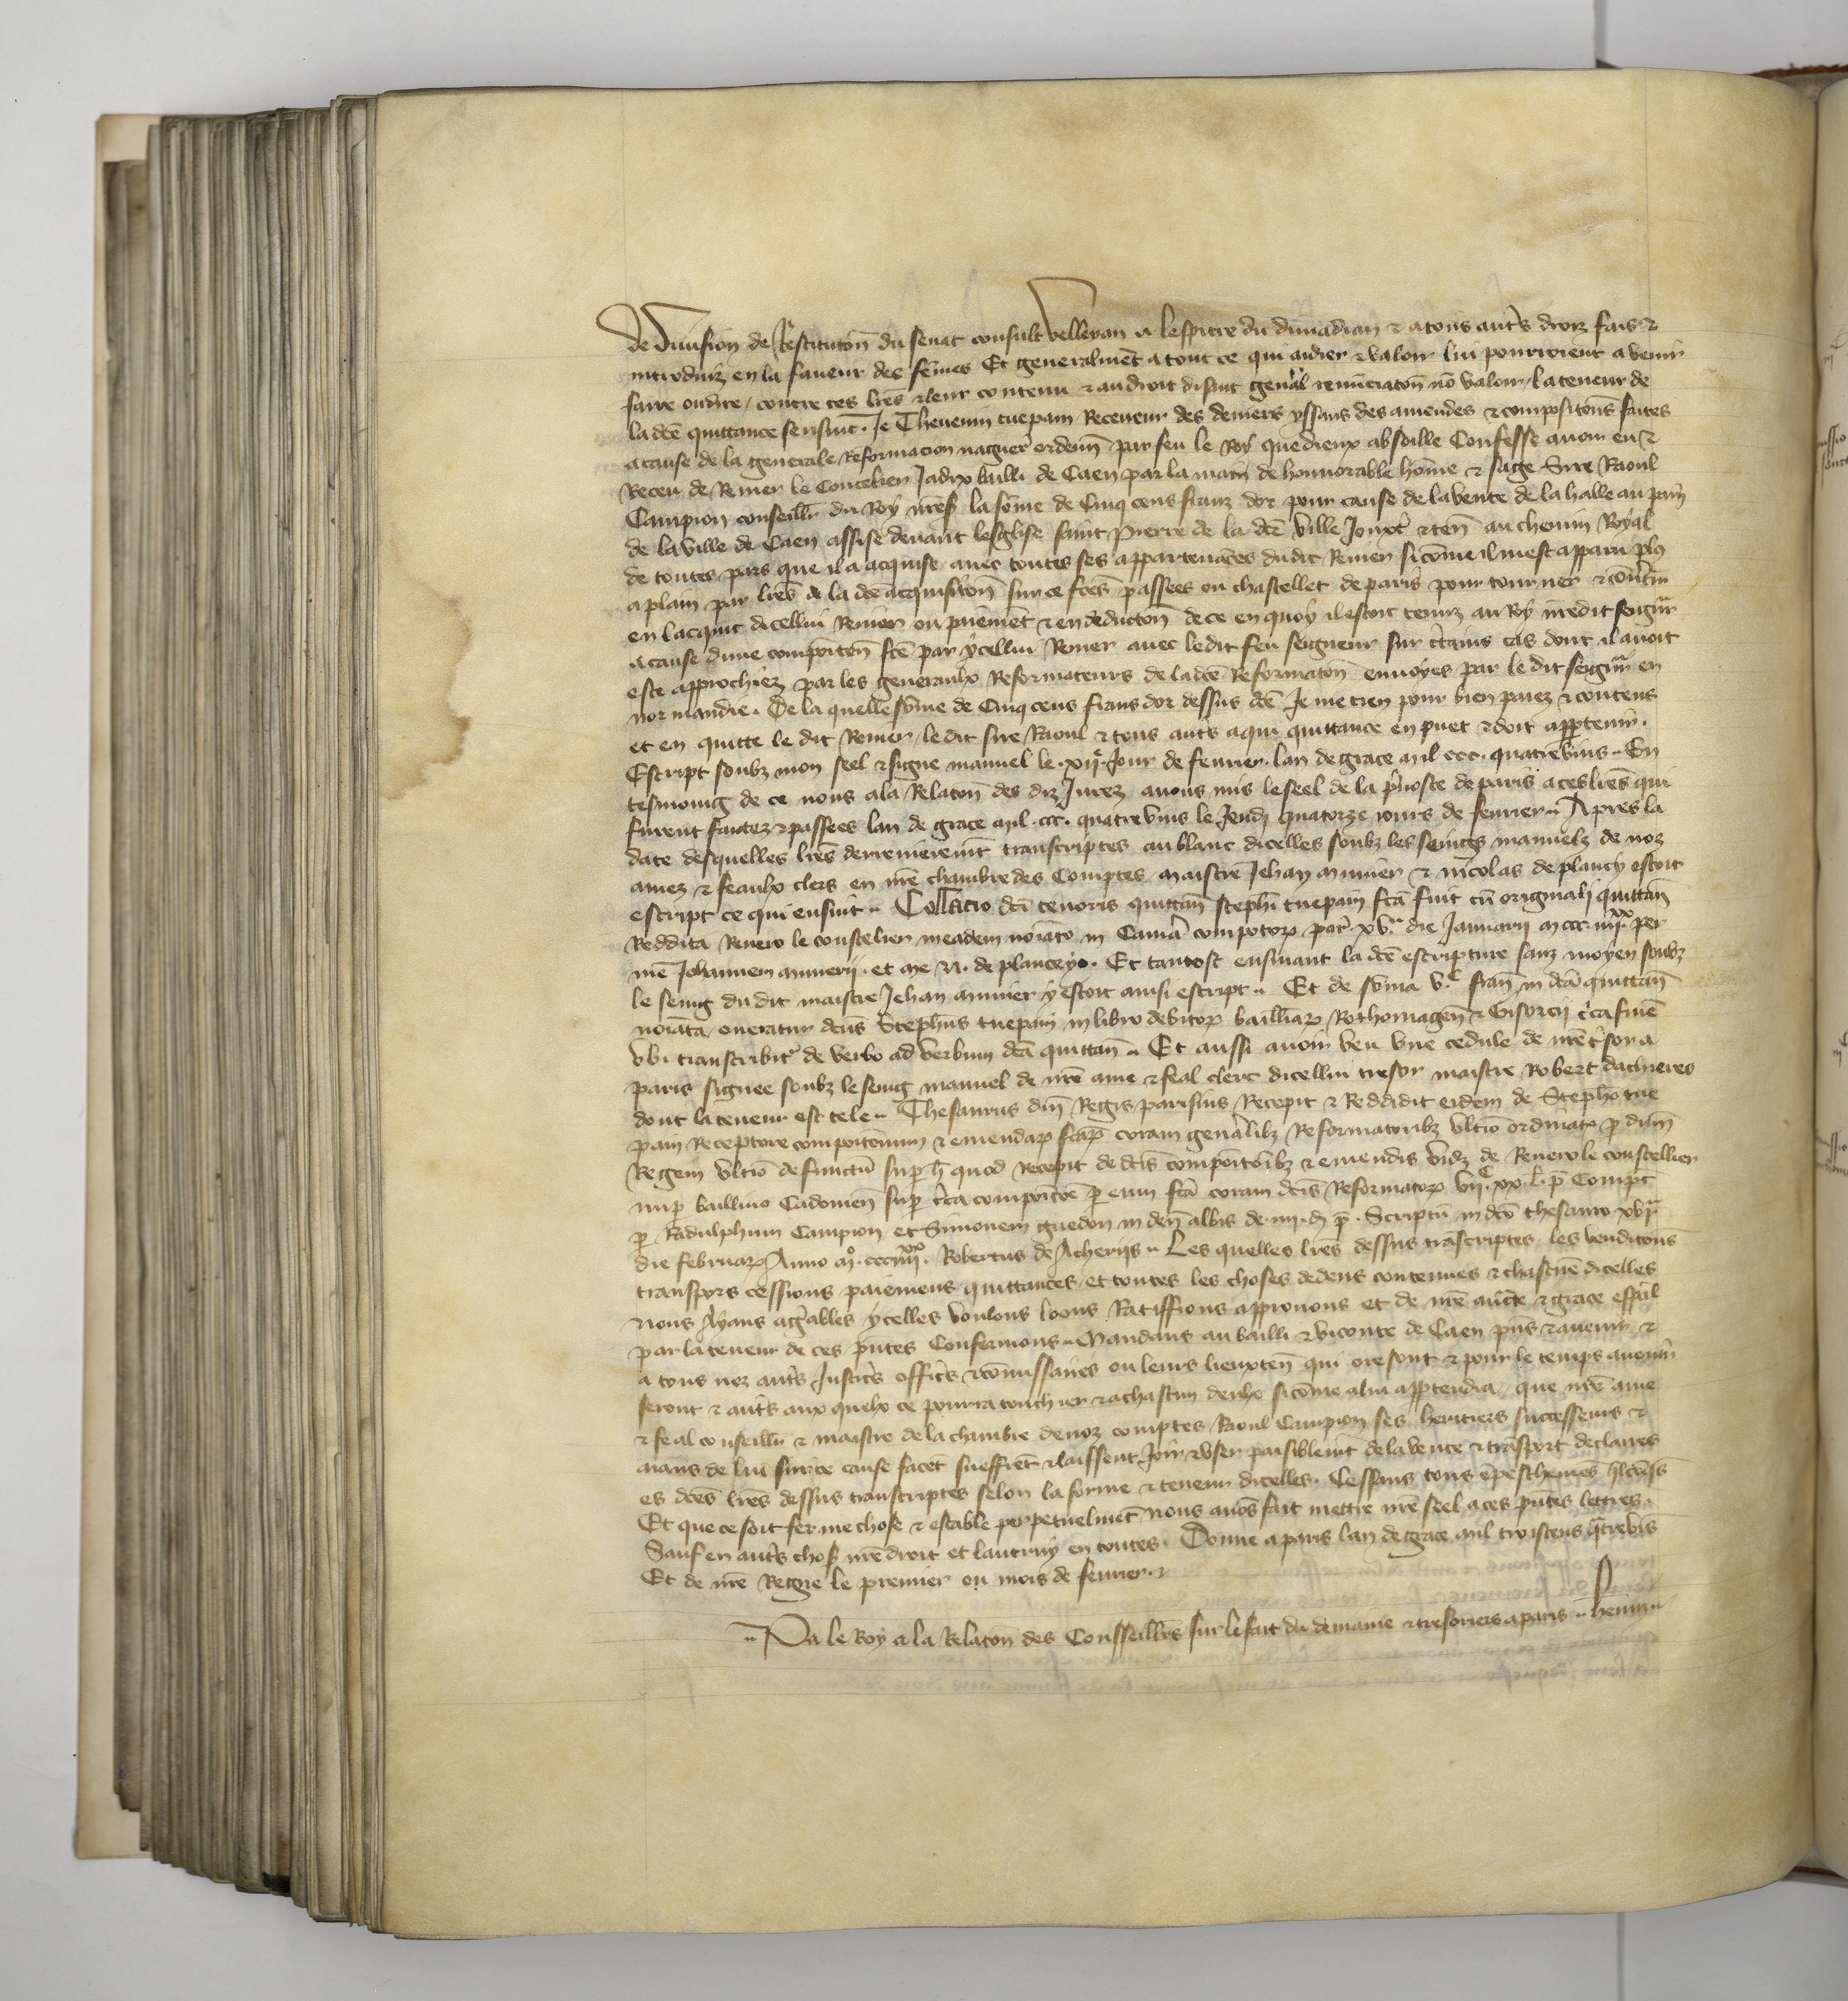 de diuision de Restitutoñ du senat consult velleyan a lespitre du diuiadrian & a tous aut's drois fais &
introduiz en la faueur des fẽmes Et generalmẽt a tout ce qui aidier & valoir lui pourroient a venir
faire ou dire / contre ces lr̃es & leur contenu & au droit disant gen'al renũciatoñ nõ valoir / la teneur de
la dc̃e quittance sensuit. Je Theuenin tuepain Receueur des deniers yssans des amendes & compositoñs faites
a cause de la generale Reformacion nagueir' ordenñ par feu le Roy que dieux absoille Confesse auoir eu &
Receu de Renier le Coutelier Jadix bailli de Caen par la main de honnorable hõme & sage Sire Raoul
Campion conseillr̃ du Roy nr̃e s' la sõme de Cinq cens franz dor pour cause de la vente de la halle au pain
de la ville de Caen assise deuant lesglise saint Pierre de la dc̃e ville Joux't & teñ au chemin Royal
de toutes pars que il a acquise auec toutes ses appartenãces dudit Renier si cõme il mest apparu pl9
a plain par lr̃es de la dc̃e acquisitoñ sur ce fc̃es passees ou chastellet de paris pour tourner & cõu'tir
en lacquit dicellui Renier ou paiemẽt & en dedutoñ de ce en quoy il estoit tenuz au Roy nr̃edit seigr̃
a cause dune compositoñ fc̃e par ycellui Renier auec ledit feu seigneur sur c'tains cas dont il auoit
este approchiez par les generaulx Reformateurs de la dc̃e Reformatoñ enuoyes par le dit seigr̃ en
normandie. De la quelle sõme de Cinq cens frans dor dessus dc̃e Je me tien pour bien paiez & contens
et en quitte le dit Renier / le dit sire Raoul & tous aut's a qui quittance en puet & doit app̱tenir.
Escript soubz mon seel & signe manuel le .xije. Jour de feurier. lan de grace mil ccc. quatrevins. En
tesmoing de ce nous a la Relatoñ des diz Jurez auons mis le seel de la p'uoste de paris a ces lr̃es qui
furent faictez & passees lan de grace mil. ccc. quatrevins le Jeudj quatorze iours de feurier. Apres la
date desquelles lr̃es derrenieremt̃ transcriptes au blanc dicelles soubz les seings manuelz de noz
amez & feaulx clers en nr̃e chambre des Comptes maistre Jehan munier & nicolas de plancy estoit
escript ce qui ensuit. Collatio dc̃i tenoris quittañ stephĩ tuepain fc̃a fuit cũ originali quittañ
Reddita Reniero le coustelier in eadem noĩato in Cam'a compotoꝝ par'. xv.a die Januarij m ccc. iiijxx. per
me Johannem munerij. et me N. de planceyo. Et tantost ensuiuant la dc̃e escripture sanz moyen soubz
le seing du dit maistre Jehan munier y estoit ainsi escript. Et de sũma v.c frañ in dc̃a quittañ
noĩata oneratur dc̃us Stephus tuepain in libro debitoꝝ bailliaꝝ Rothomageñ & Gisorcij c'ca finẽ
vbi transcribit' de verbo ad verbum dc̃a quittañ. Et aussi auoir veu vne cedule de nr̃e t'sor a
paris signee soubz le seing manuel de nr̃e ame & feal clerc dicellui tresor maistre Robert dachieres
dont la teneur est tele. Thesaurus dñi Regis parisius Recepit & Reddidit eidem de Stepho tue
pain Receptore compositionum & emendaꝝ fc̃aꝝ coram gen'alibz Reformatoribz vltĩo ordinatꝭ p̱ dñm
Regem vltĩo defunctũ sup̱ h̃ quod recepit de dc̃is compositõibz & emendis vidz de Reniero le coustellier
nup̱ bailliuo Cadomeñ sup̱ c'ta compositõe p̱ eum fc̃a coram dc̃is Reformatoꝝ vijc. xx. l'. p̃ Compt̃
p̱ Radulphum Campion et Simonem guedon in deñ albis de .iiij. d p̃. Scriptũ in dc̃o thesauro xvja
die februaꝝ Anno mº. cccmo iiijxx. Robertus de Acherijs. Les quelles lr̃es dessus trãscriptes, les venditoñs
transpors cessions paiemens quittances, et toutes les choses dedens contenues & chascune dicelles
nous Ayans ag'ables ycelles voulons loons Ratiffions approuuons et de nr̃e auc̃te & grace esp̃al
par la teneur de ces p̃ntes Confermons. Mandans au bailli & viconte de Caen p̃ns & auenir &
a tous noz aut's Justic's offic's & cõmissaires ou leurs lieuxteñ qui ore sont & pour le temps auenir
seront & aut's aux quelx ce pourra touchier & a chascun deulx si cõme a lui app̱tendra, que nr̃e ame
& feal conseillr̃ & maistre de la chambre de noz comptes Raoul Campion ses heritiers successeurs &
aians de lui sur ce cause facẽt sueffrẽt & laissent Joir & vser paisiblemt̃ de la vente & trãsport declares
es dc̃es lr̃es dessus transcriptes selon la forme & teneur dicelles. Cessans tous ẽpeschemẽs
Et que ce soit ferme chose & estable perpetuelmẽt nous auõs fait mettre nr̃e seel a ces p̃ntes lettres.
Sauf en aut's chos' nr̃e droit et lautruy en toutes. Donne a paris lan de grace mil troiscens q̃trevins
Et de nr̃e Regne le premier ou mois de feurier.
Par le Roy a la Relatoñ des Conseillrs sur le fait du demaine & tresoriers a paris. henry